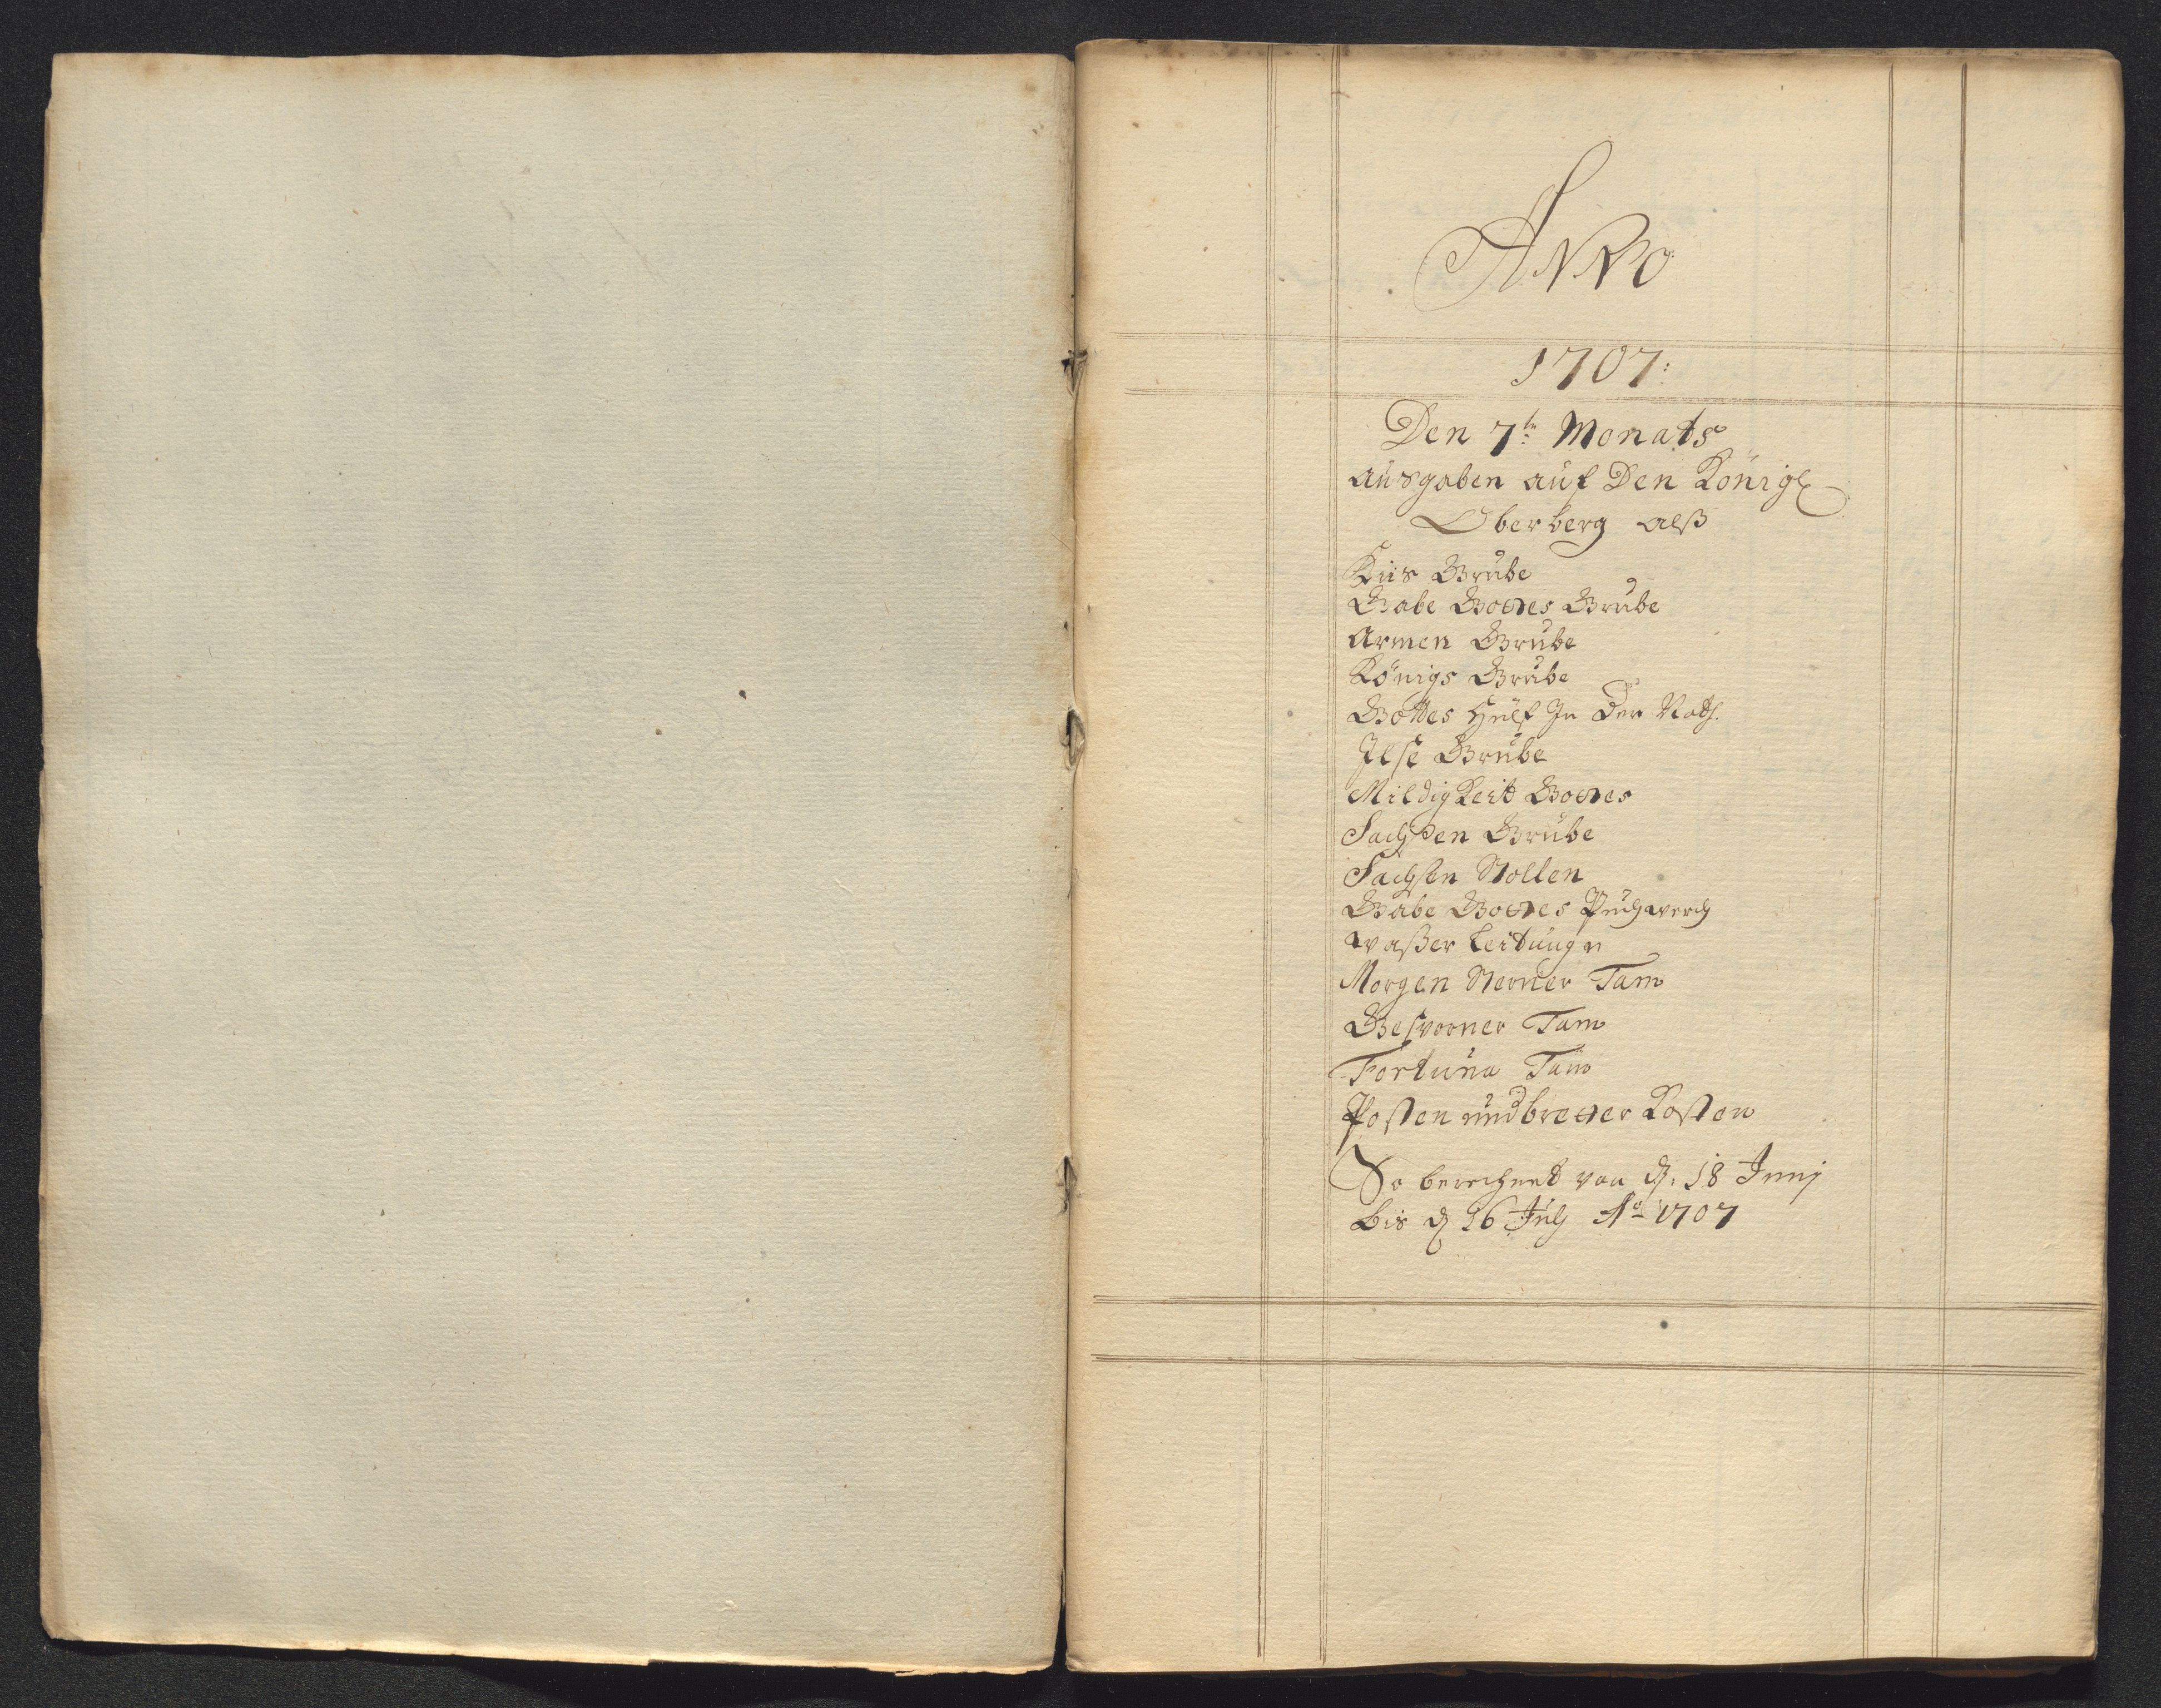 ANNO
1707:
Den 7tn Monats
ausgaben auf Den Königl
Oberberg alß
Gabe Gottes Grube
Armen Grube
Königs Grube
Gottes Hülf In Der Noth.
Ilse Grube
Mildigkeit Gottes
Sachsen Grube
Sachsen Stollen
Gabe Gottes Puchwerch
waßer Leitung
Morgen Sterner Tam
Geschworner Tam
Fortuna Tam
Posten und bretter Kosten
So berechnet von d. 18 Junj
bis d 16 July Ao 1707